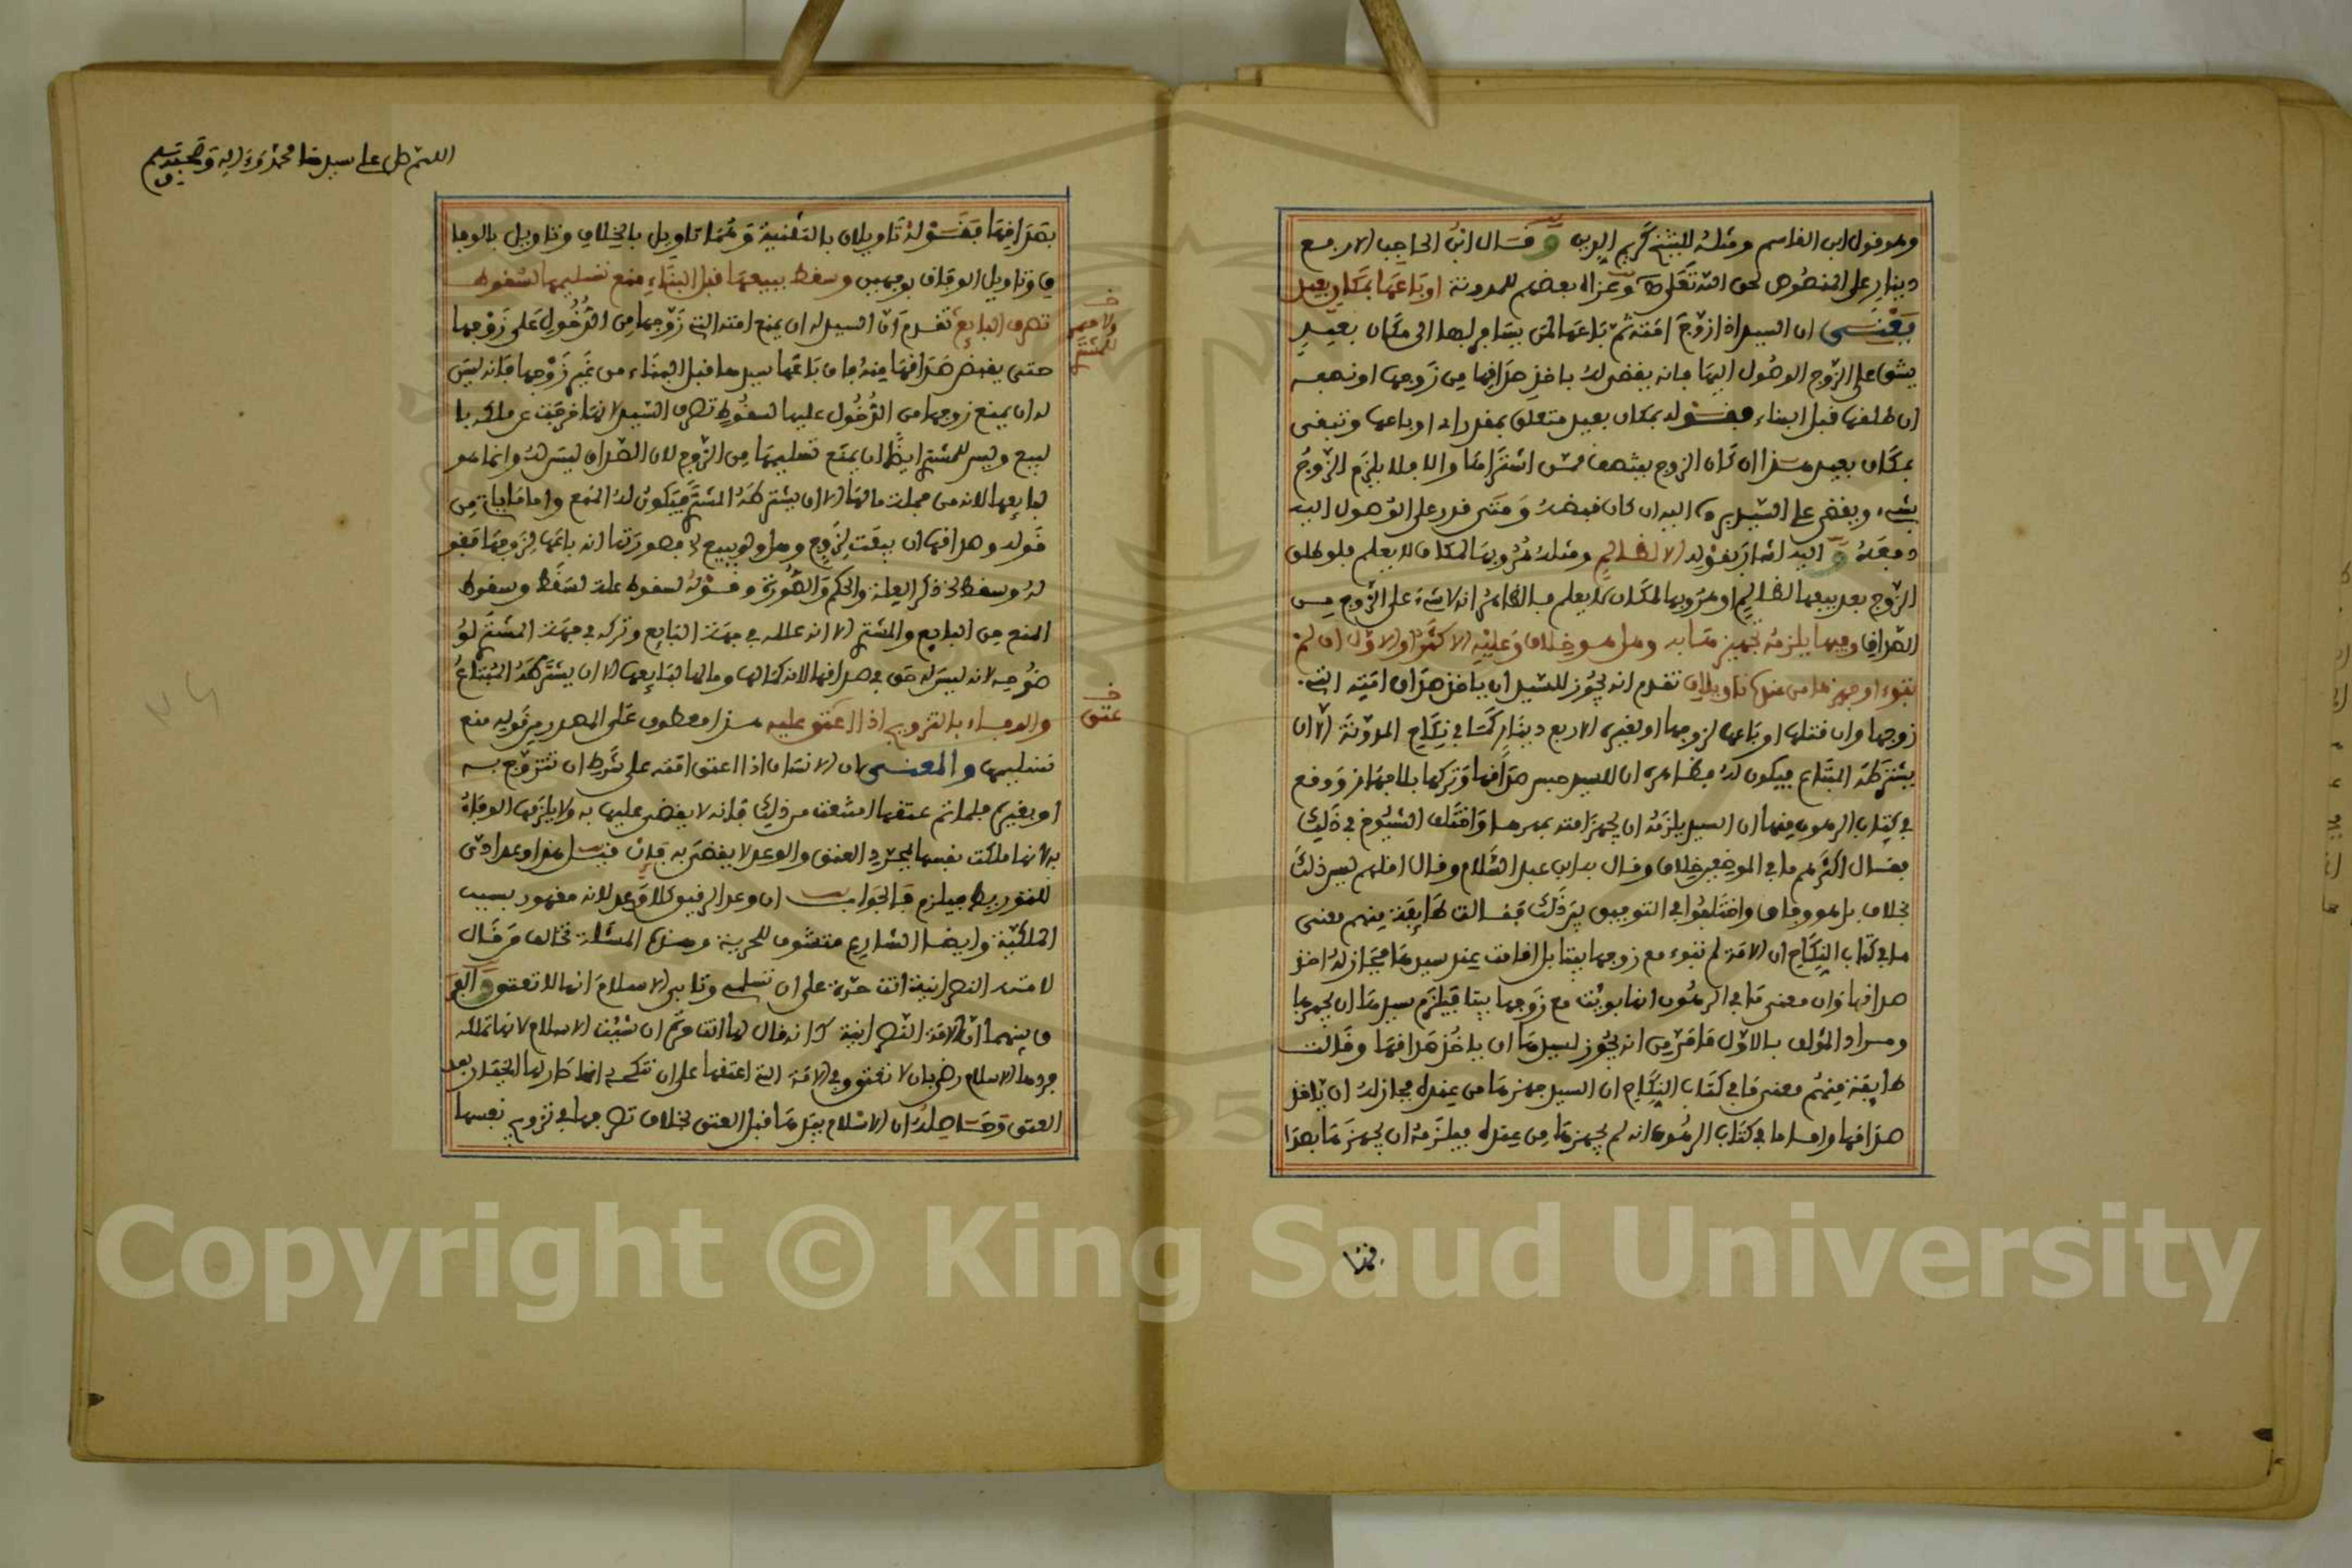 وهو قول ابن القاسم ومثله للشيخ كريم الدين و قال ابن الحاجب الا ربع
دينار على المنصوص لحق الله تعالى وعزاه بعضهم للمدونة او باعها بمكان بعيد
يعني ان السيد اذا زوج امته ثم باعها لمن يسافر بها الى مكان بعيد
يشق على الزوج الوصول اليها فانه يقضى له باخذ صداقها من زوجها او نصفه
ان طلقها قبل البناء فقوله بمكان بعيد متعلق بمقدر اي او باعها وتبقى
بمكان بعيد هذا ان كان الزوج ينتصف ممن اشتراها والا فلا يلزم الزوج
شيء ويقضى على السيد برده اليه ان كان قبضه ومتى قدر على الوصول اليه
دفعه و اليه اشار بقوله الا لظالم ومثله غروبها لمكان لا يعلم فلو طلق
الزوج بعد بيعها لظالم او غروبها لمكان لا يعلم فالظاهر انه لا شيء على الزوج من
الصداق وفيها يلزمه تجهيزها به وهل هو خلاف وعليه الاكثر او الاول ان لم
تبوء او جهزها من عنده تاويلان تقدم انه يجوز للسيد ان ياخذ صداق امته التي
زوجها وان قتلها او باعها لزوجها او بغيره الا ربع دينار كما في نكاح المدونة الا ان
يشترطه المبتاع فيكون له فظاهره ان للسيد حبس صداقها وتركها بلا جهاز ووقع
في كتاب الرهون منها ان السيد يلزمه ان يجهز امته بمهرها واختلف الشيوخ في ذلك
فقال اكثرهم ما في الموضعين خلاف وقال به ابن عبد السلام وقال اقلهم ليس ذلك
بخلاف بل هو وفاق واختلفوا في التوفيق بين ذلك فقالت طائفة منهم معنى
ما في كتاب النكاح ان الامة لم تبوء مع زوجها بيتا بل اقامت عند سيدها فجاز له اخذ
صداقها وان معنى ما في الرهون انها بوئت مع زوجها بيتا فيلزم سيدها ان يجهزها
ومراد المؤلف بالاول ما مر من انه يجوز لسيدها ان ياخذ صداقها وقالت
طائفة منهم معنى ما في كتاب النكاح ان السيد جهزها من عنده فجاز له ان ياخذ
صداقها واما ما في كتاب الرهون انه لم يجهزها من عنده فيلزمه ان يجهزها بصدا
فقوله
اللهم صل على سيدنا محمد وءاله وصحبه وسلم
بصداقها فقوله تاويلان بالتثنية وهما تاويل بالخلاف وتاويل بالوفا
ق وتاويل الوفاق بوجهين وسقط ببيعها قبل البناء منع تسليمها لسقوط
تصرف البايع تقدم ان السيد له ان يمنع امته التي زوجها من الدخول على زوجها
حتى يقبض صداقها منه فان باعها سيدها قبل البناء من غير زوجها فانه ليس
له ان يمنع زوجها من الدخول عليها لسقوط تصرف السيد لانها خرجت عن ملكه با
لبيع وليس للمشتري ايضا ان يمنع تسليمها من الزوج لان الصداق ليس له وانما هو
لبايعها لانه من جملة مالها الا ان يشترطه المشتري فيكون له المنع واما ما ياتي من
قوله وصداقها ان بيعت لزوج وهل ولو ببيع فصورتها انه باعها لزوجها فقو
له وسقط الخ ذكر العلة والحكم والصورة وقوله لسقوط علة لسقط وسقوط
المنع من البايع والمشتري الا انه علله في جهة البايع وتركه في جهة المشتري لو
ضوحه لانه ليس له حق في صداقها لانه كمالها ومالها لبايعها الا ان يشترطه المبتاع
والوفاء بالتزويج اذا اعتق عليه هذا معطوف على المصدر من قوله منع
تسليمها والمعنى ان الانسان اذا اعتق امته على شرط ان تتزوج به
او بغيره فلما تم عتقها امتنعت من ذلك فانه لا يقضى عليها به ولا يلزمها الوفاء
به لانها ملكت نفسها بمجرد العتق والوعد لا يقضى به فان قيل هذا وعد ادى
للتوريط فيلزم فالجواب ان وعد الرقيق كلا وعد لانه مقهور بسبب
الملكية وايضا الشارع متشوف للحرية وهذه المسئلة تخالف من قال
لامته النصرانية انت حرة على ان تسلم وتابى الاسلام انها لا تعتق و الفر
ق بينهما ان الامة النصرانية كانه قال لها انت حرة ان شئت الاسلام لانها تملك
العتق وحاصله ان الاسلام بيدها قبل العتق بخلاف تصرفها في تزويج نفسها
خـ
ولا
للمشتر
خـ
عتق
Copyright © King Saud University